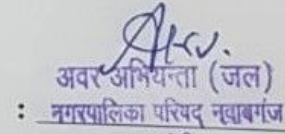 अवर अभियन्ता (जल)
: नगरपालिका परिषद नवाबगंज